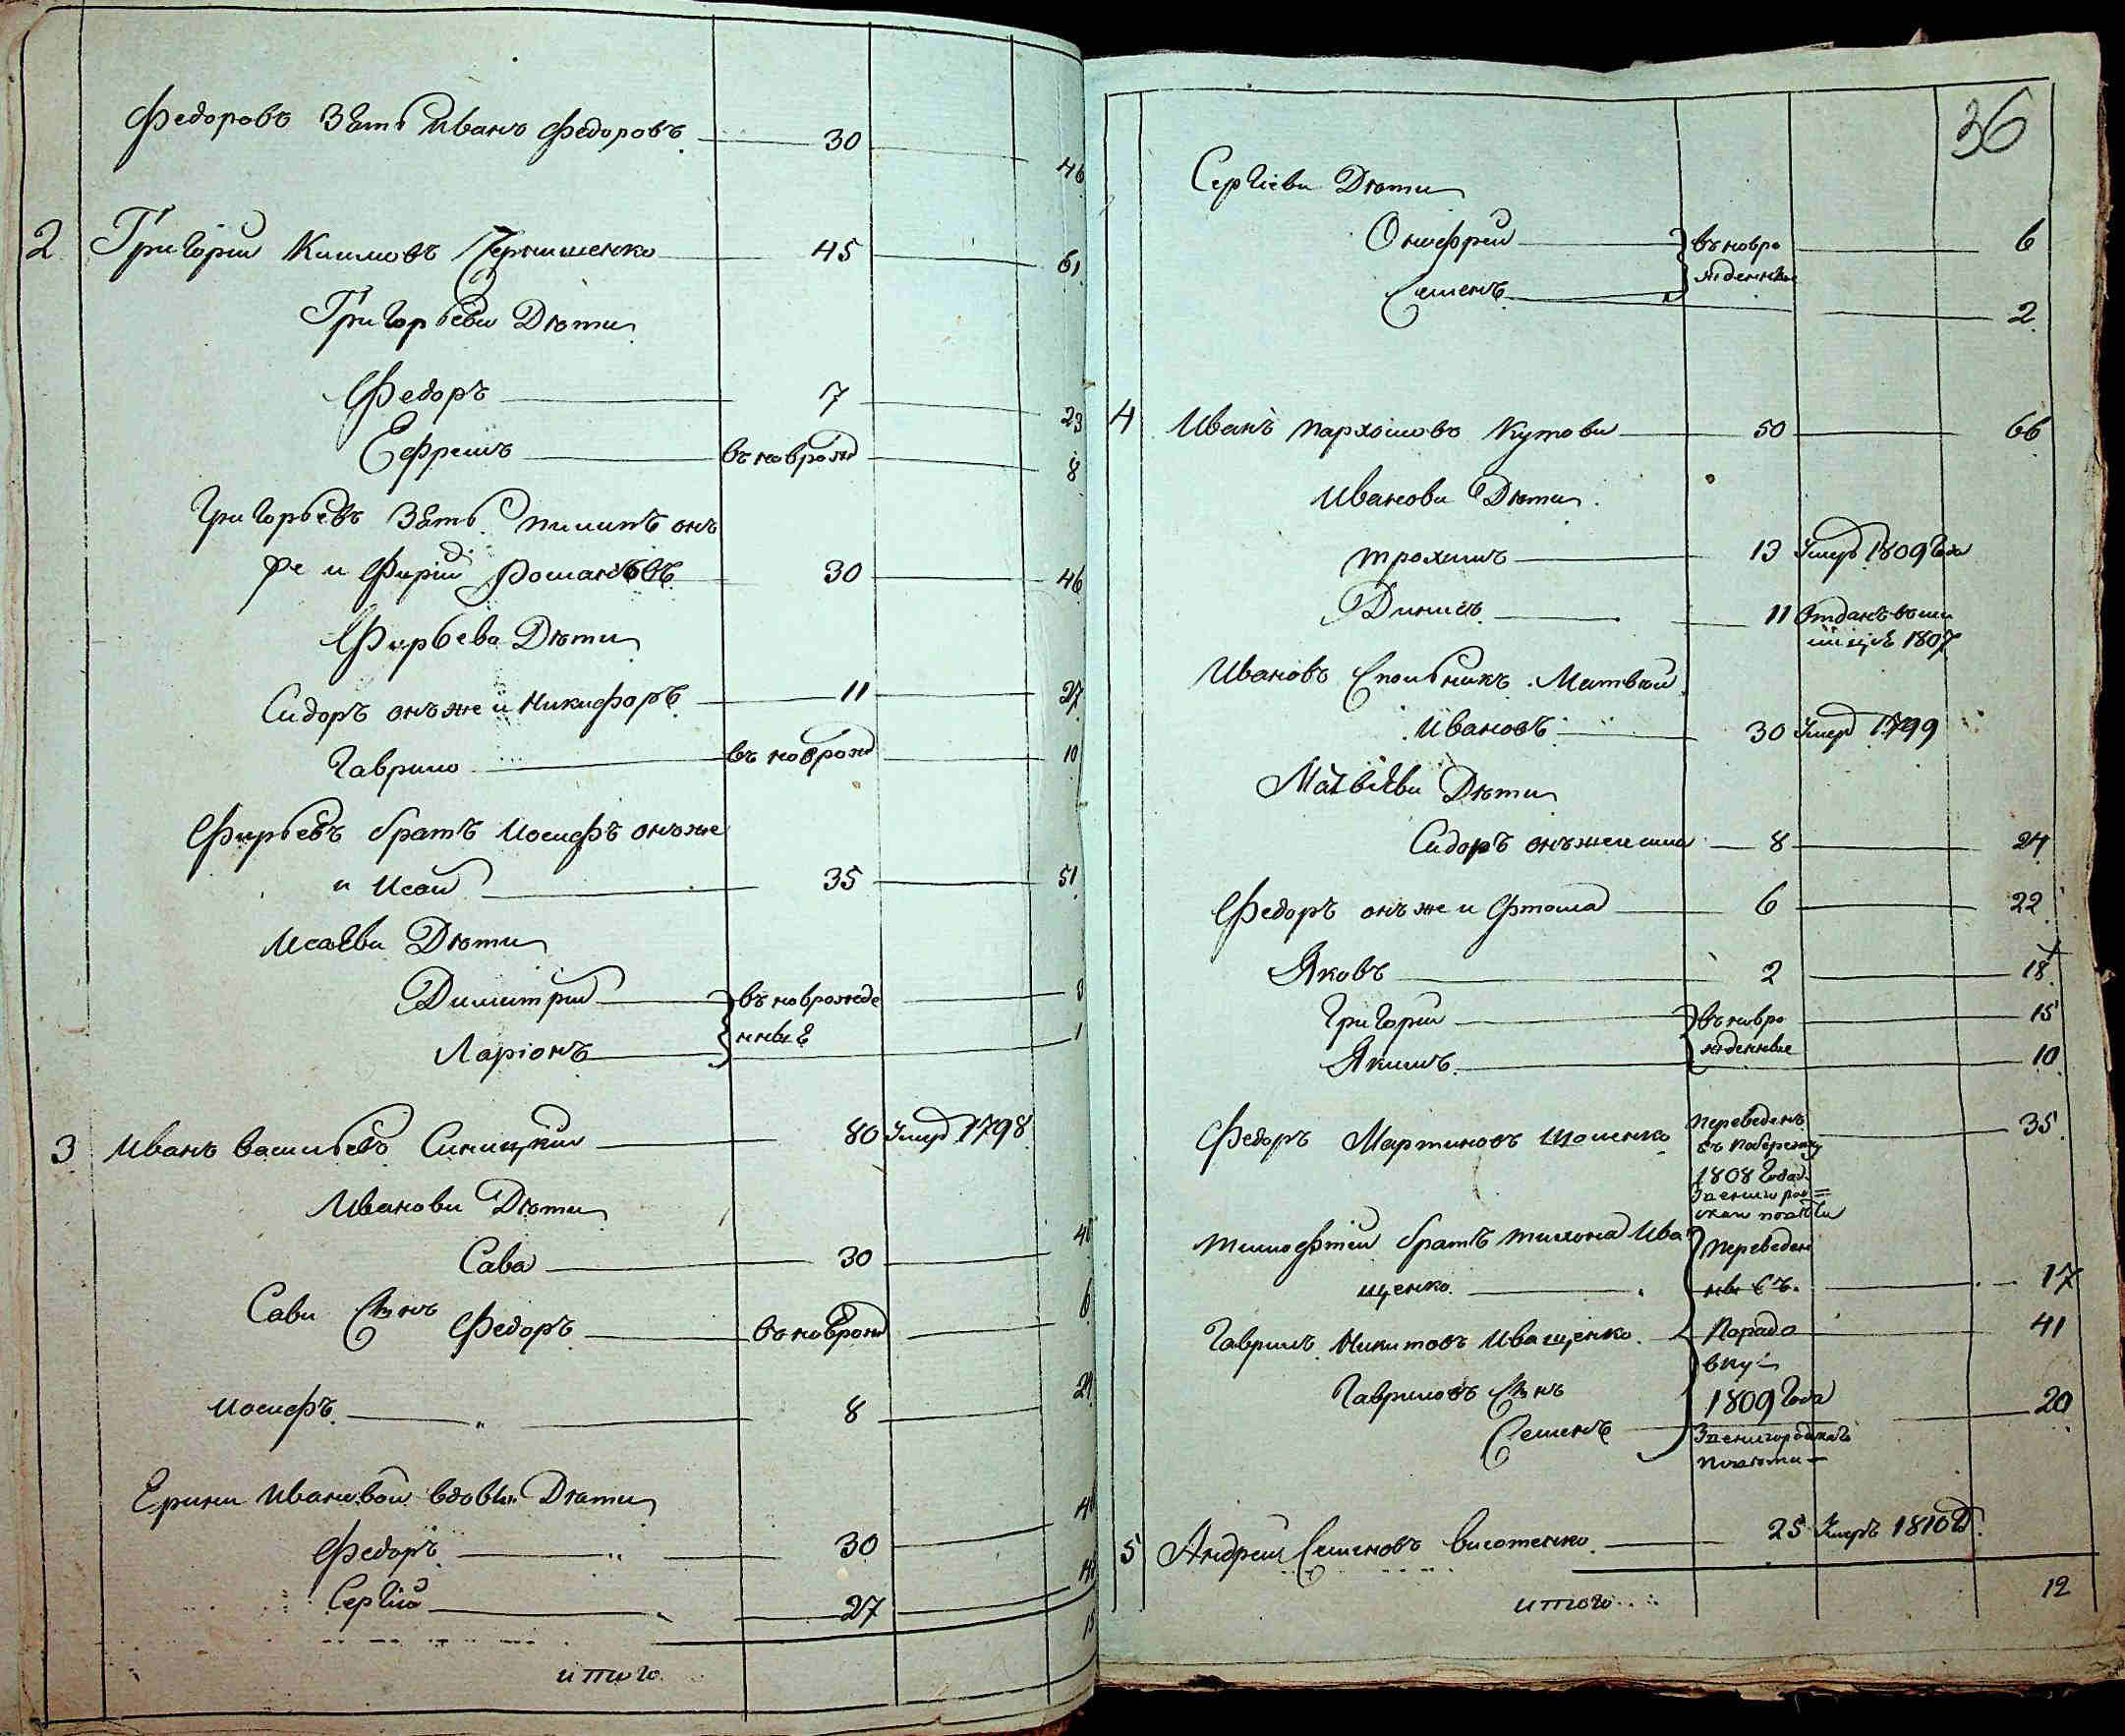 Федоровъ Зять Иванъ Федоровъ 30 46
2 Григорій Климовъ Чернишенко 45 61
Григорьеви Дѣти
Федоръ 7 23
Ефремъ въ новрожд 8
Григорьевъ Зять Пилипъ онъ
же и Фирій Романовъ 30 46
Фирьева Дѣти
Сидоръ онъ же и Никифоръ 11 27
Гаврило въ новрожд 10
Фирьевъ братъ Иосифъ онъ же
и Исай 35 51
Исаеви Дѣти
Димитрій въ новрожде
нные
Ларіонъ 1
3 Иванъ Васильевъ Синицкий 80 Умер 1798
Иванови Дѣти
Сава 30 46
Сави Сынъ Федоръ въ новрожд 6
Иосифъ 8 24
Ерини Ивановой вдовы Дѣти
Федоръ 30
Сергій 27
итого
36
Сергіеви Дѣти
Онофрей въ новро 6
жденные
Семенъ 2
4 Иванъ Пархомовъ Кутови 50 66
Иванови Дѣти
Трохимъ 13 Умеръ 1809 Года
Динисъ 11 Отданъ въ ми
лицію 1807
Ивановъ Спольникъ Матвѣй
Ивановъ 30 Умер 1799
Матвѣеви Дѣти
Сидоръ онъ же и 8 24
Федоръ онъ же и Фтома 6 22
Яковъ 2 18
Григорій въ новро 15
жденные
Якимъ 10
Федоръ Мартиновъ Шоненко Переведенъ 35
въ Побережку
1808 Года
Звенигород=
скаи повѣти
Тимофтей братъ Тихона Ива Переведен
щенко ны съ 17
Гаврилъ Никитовъ Иващенко Порадо 41
вку
Гавриловъ Сынъ 1809 Года
Семенъ 20
Звенигородскагъ
повѣти
5 Андрей Семеновъ Висотенко 25 Умеръ 1810 Г.
итого 12